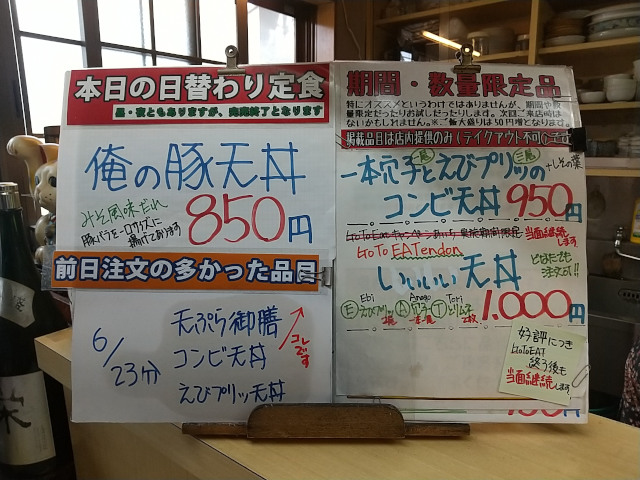 本日の日替わり定食
昼・夜ともありますが、売切終了となります
俺の豚天丼
みそ風味だれ
豚バラを一口サイズに
揚げております
850円
前日注文の多かった品目
6/23分
天ぷら御膳
コンビ天丼
えびプリッ天丼
コレです
期間・数量限定品
特にオススメというわけではありませんが、期間や数
量限定だったりお試しだったりします。次回ご来店時は
ないかもしれません。※ご飯大盛りは50円増となります。
掲載品目は店内提供のみ(テイクアウト不可)
一本穴子とえびプリッの
一尾
三尾
+しその葉
コンビ天丼 950円
当面継続します
GoTo EATendon
いいぃぃ天丼
どなたでも
注文可!!
1,000円
Ebi
Anago
Tori
E えびプリッ A 穴子 T とり天
2枚
好評につき
GoToEAT
終了後も
当面継続します